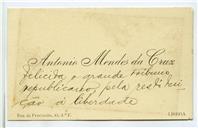 Antonio Mendes da Cruz
felicita o grande tribuno
republicano, pela restitui
ção á liberdade
Rua da Prata, 45, 2.º E.
LISBOA